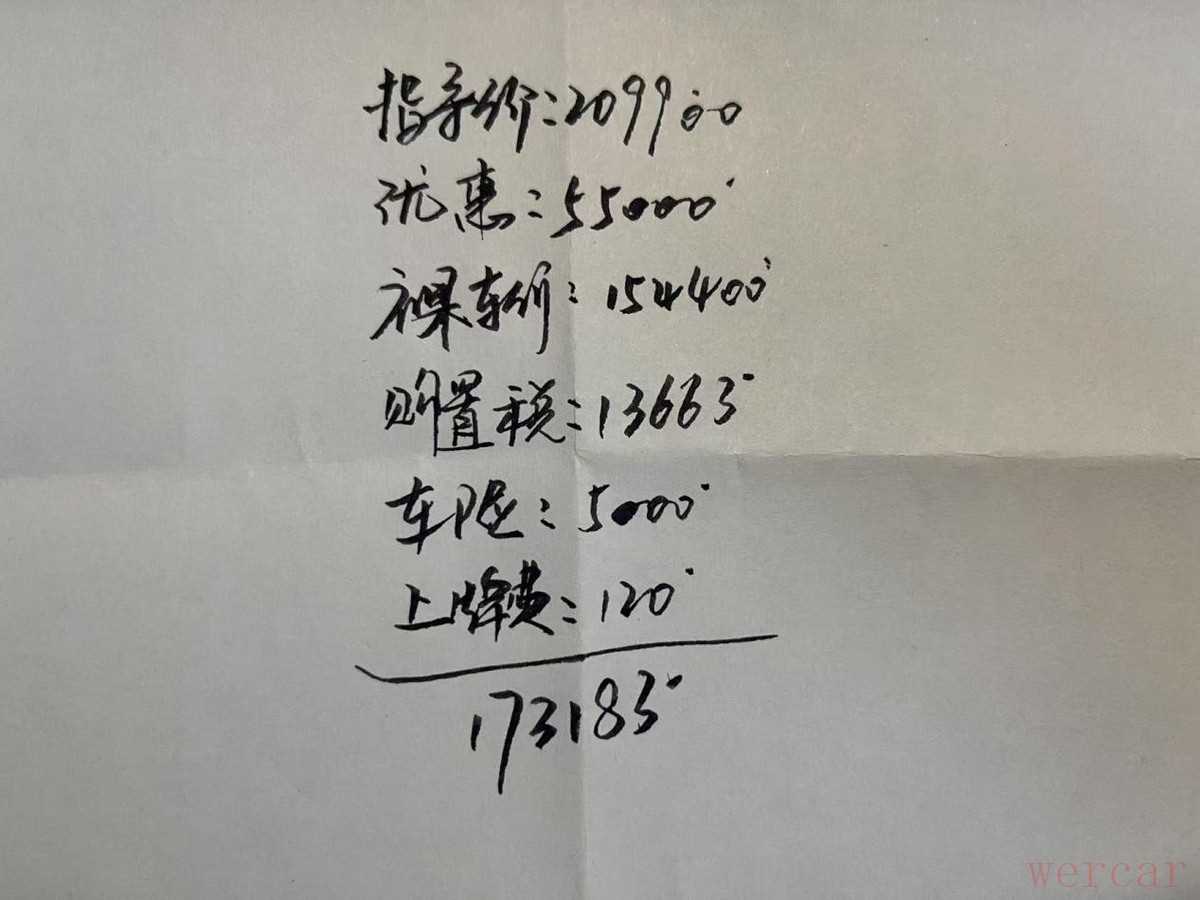 指导价:209900
优惠:55000
裸车价:154400
购置税:13663
车险:5000
上牌费:120
173183
wercar